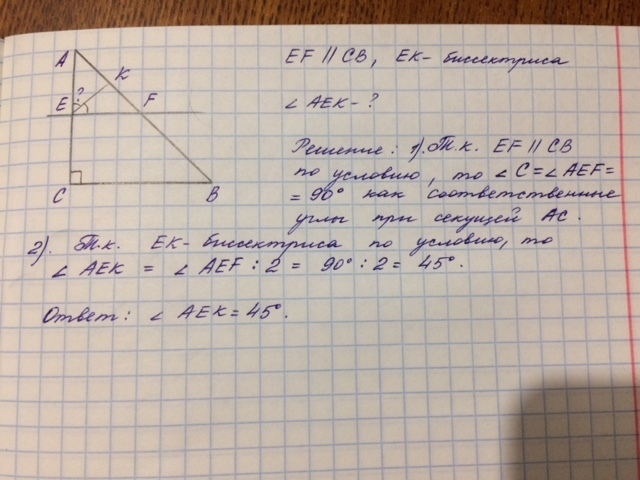 A
K
?
E
F
C
B
EF // CB, EK - биссектриса
∠ AEK - ?
Решение: 1). Т.к. EF // CB
по условию, то ∠ C = ∠ AEF =
= 90° как соответственные
углы при секущей AC.
2). Т.к. EK - биссектриса по условию, то
∠ AEK = ∠ AEF : 2 = 90° : 2 = 45°.
Ответ: ∠ AEK = 45°.